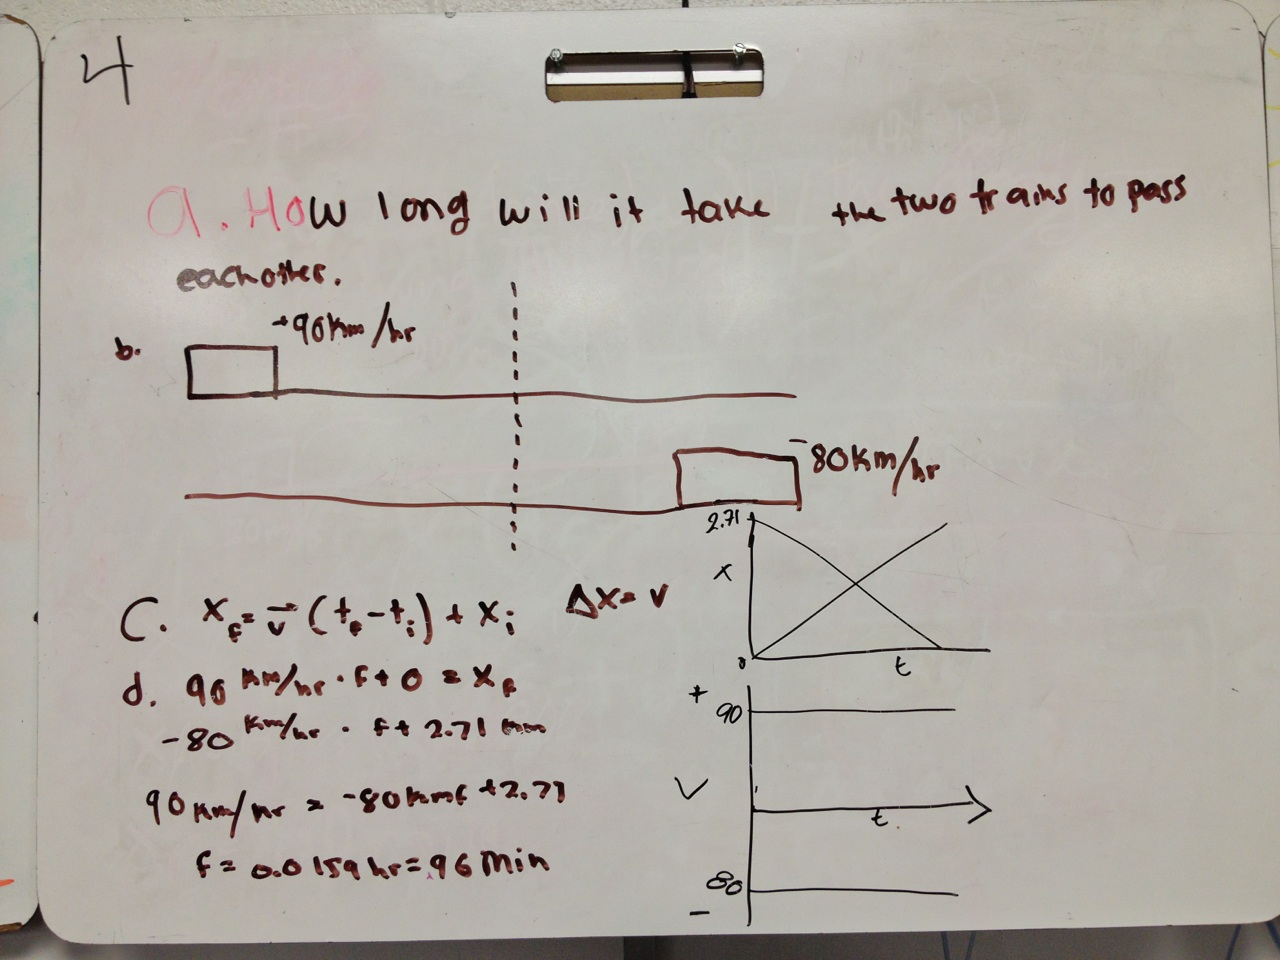 4
a. How long will it take the two trains to pass
each other.
b. +90km/hr
-80km/hr
C. x_f = v⃗ (t_f - t_i) + x_i Δx = v
d. 90 km/hr · t + 0 = x_f
-80 km/hr · t + 2.71 km
90 km/hr = -80kmt + 2.71
t = 0.0159 hr = .96 min
2.71
x
0
t
+
90
V
t
80
-